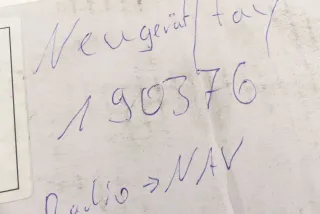 Neugerät/
190376
Radio → NAV